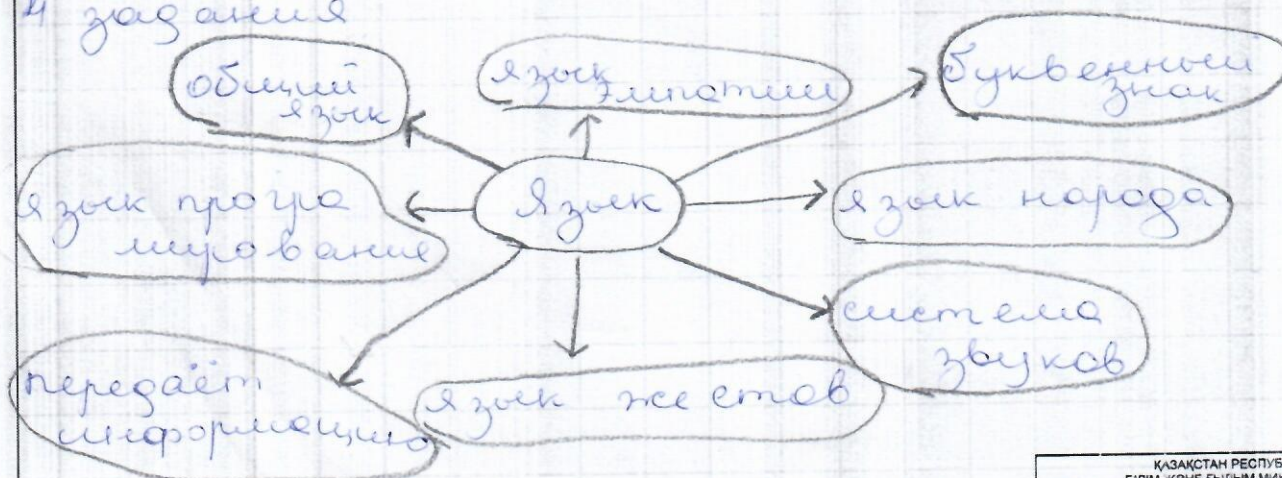 4 задания
общий
язык
язык
эмпатии
буквенный
знак
язык програ
мирование
Язык
язык народа
система
звуков
передаёт
информацию
язык жестов
ҚАЗАҚСТАН РЕСПУБ